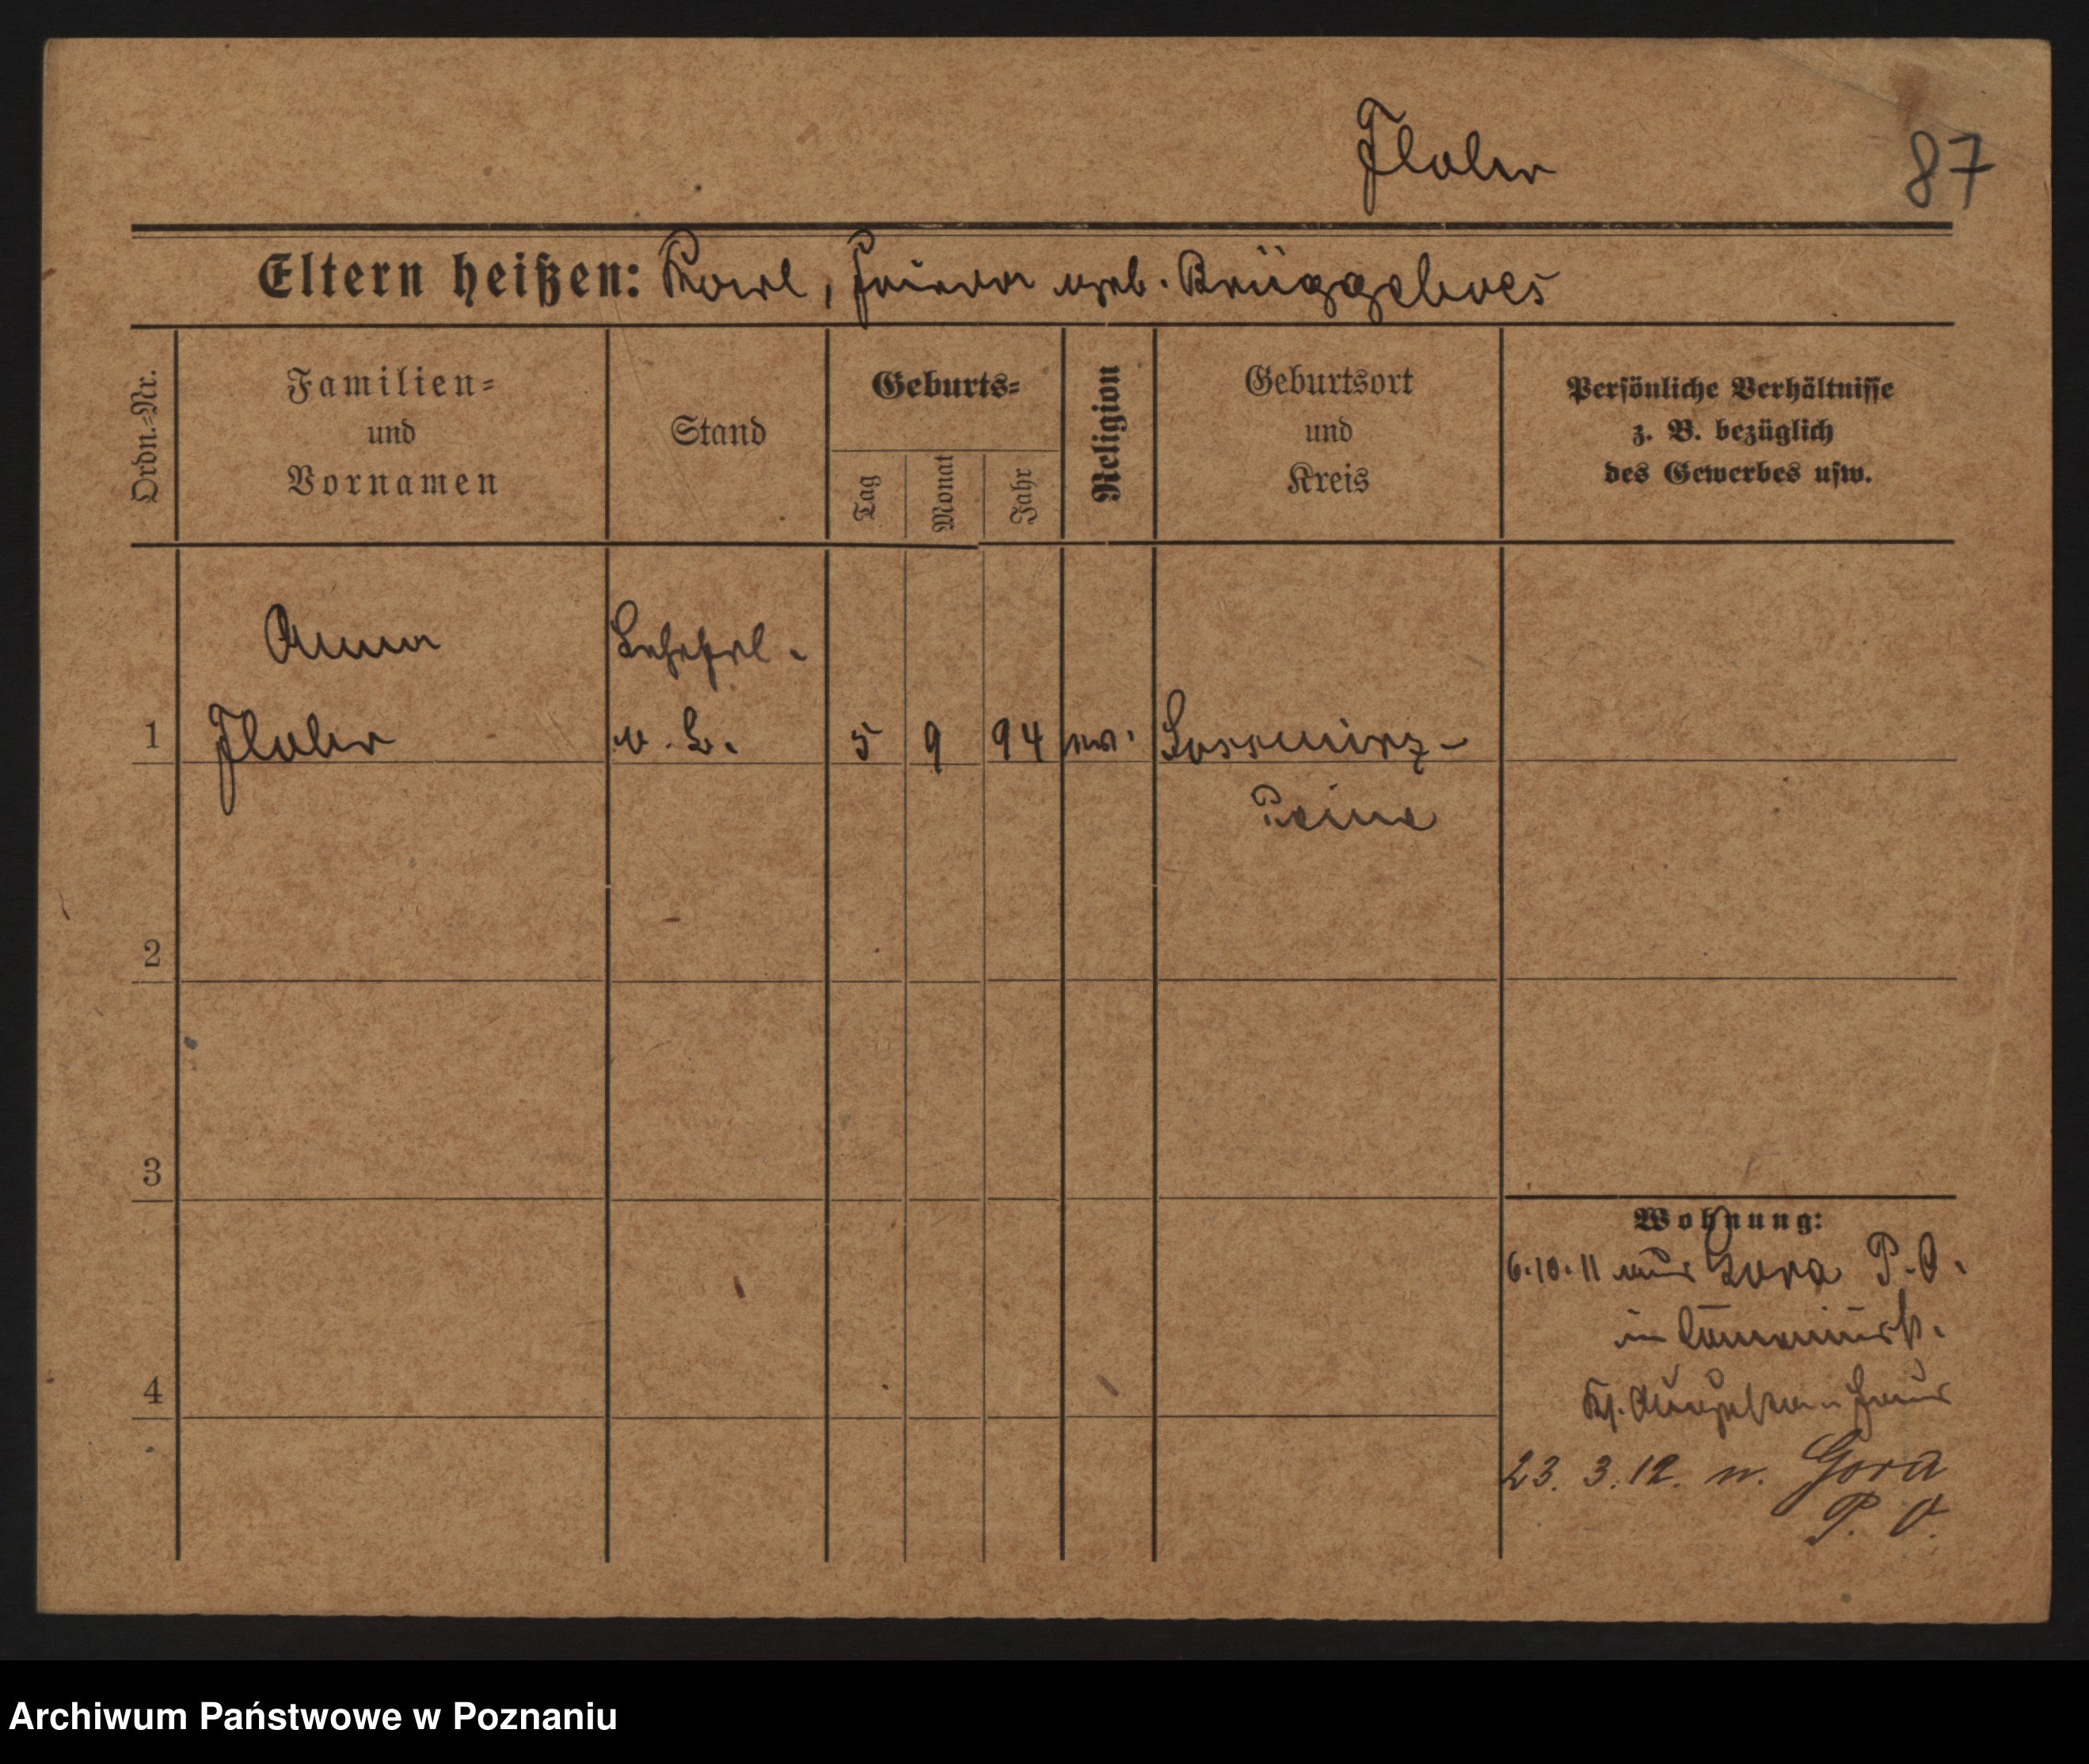 Flohr
87
Eltern heißen: Karl, Frieda geb. Brüggeboes
Ordn.=Nr.
Familien=
und
Vornamen
Stand
Geburts=
Tag
Monat
Jahr
Religion
Geburtsort
und
Kreis
Persönliche Verhältnisse
z. B. bezüglich
des Gewerbes usw.
Anna
Flohr
v. L.
5 9 94
ev.
Peine
1
2
3
4
Wohnung:
6.10.11 aus Gora P. O.
in
Haus
23. 3. 12. n. Gora
P. O.
Archiwum Państwowe w Poznaniu